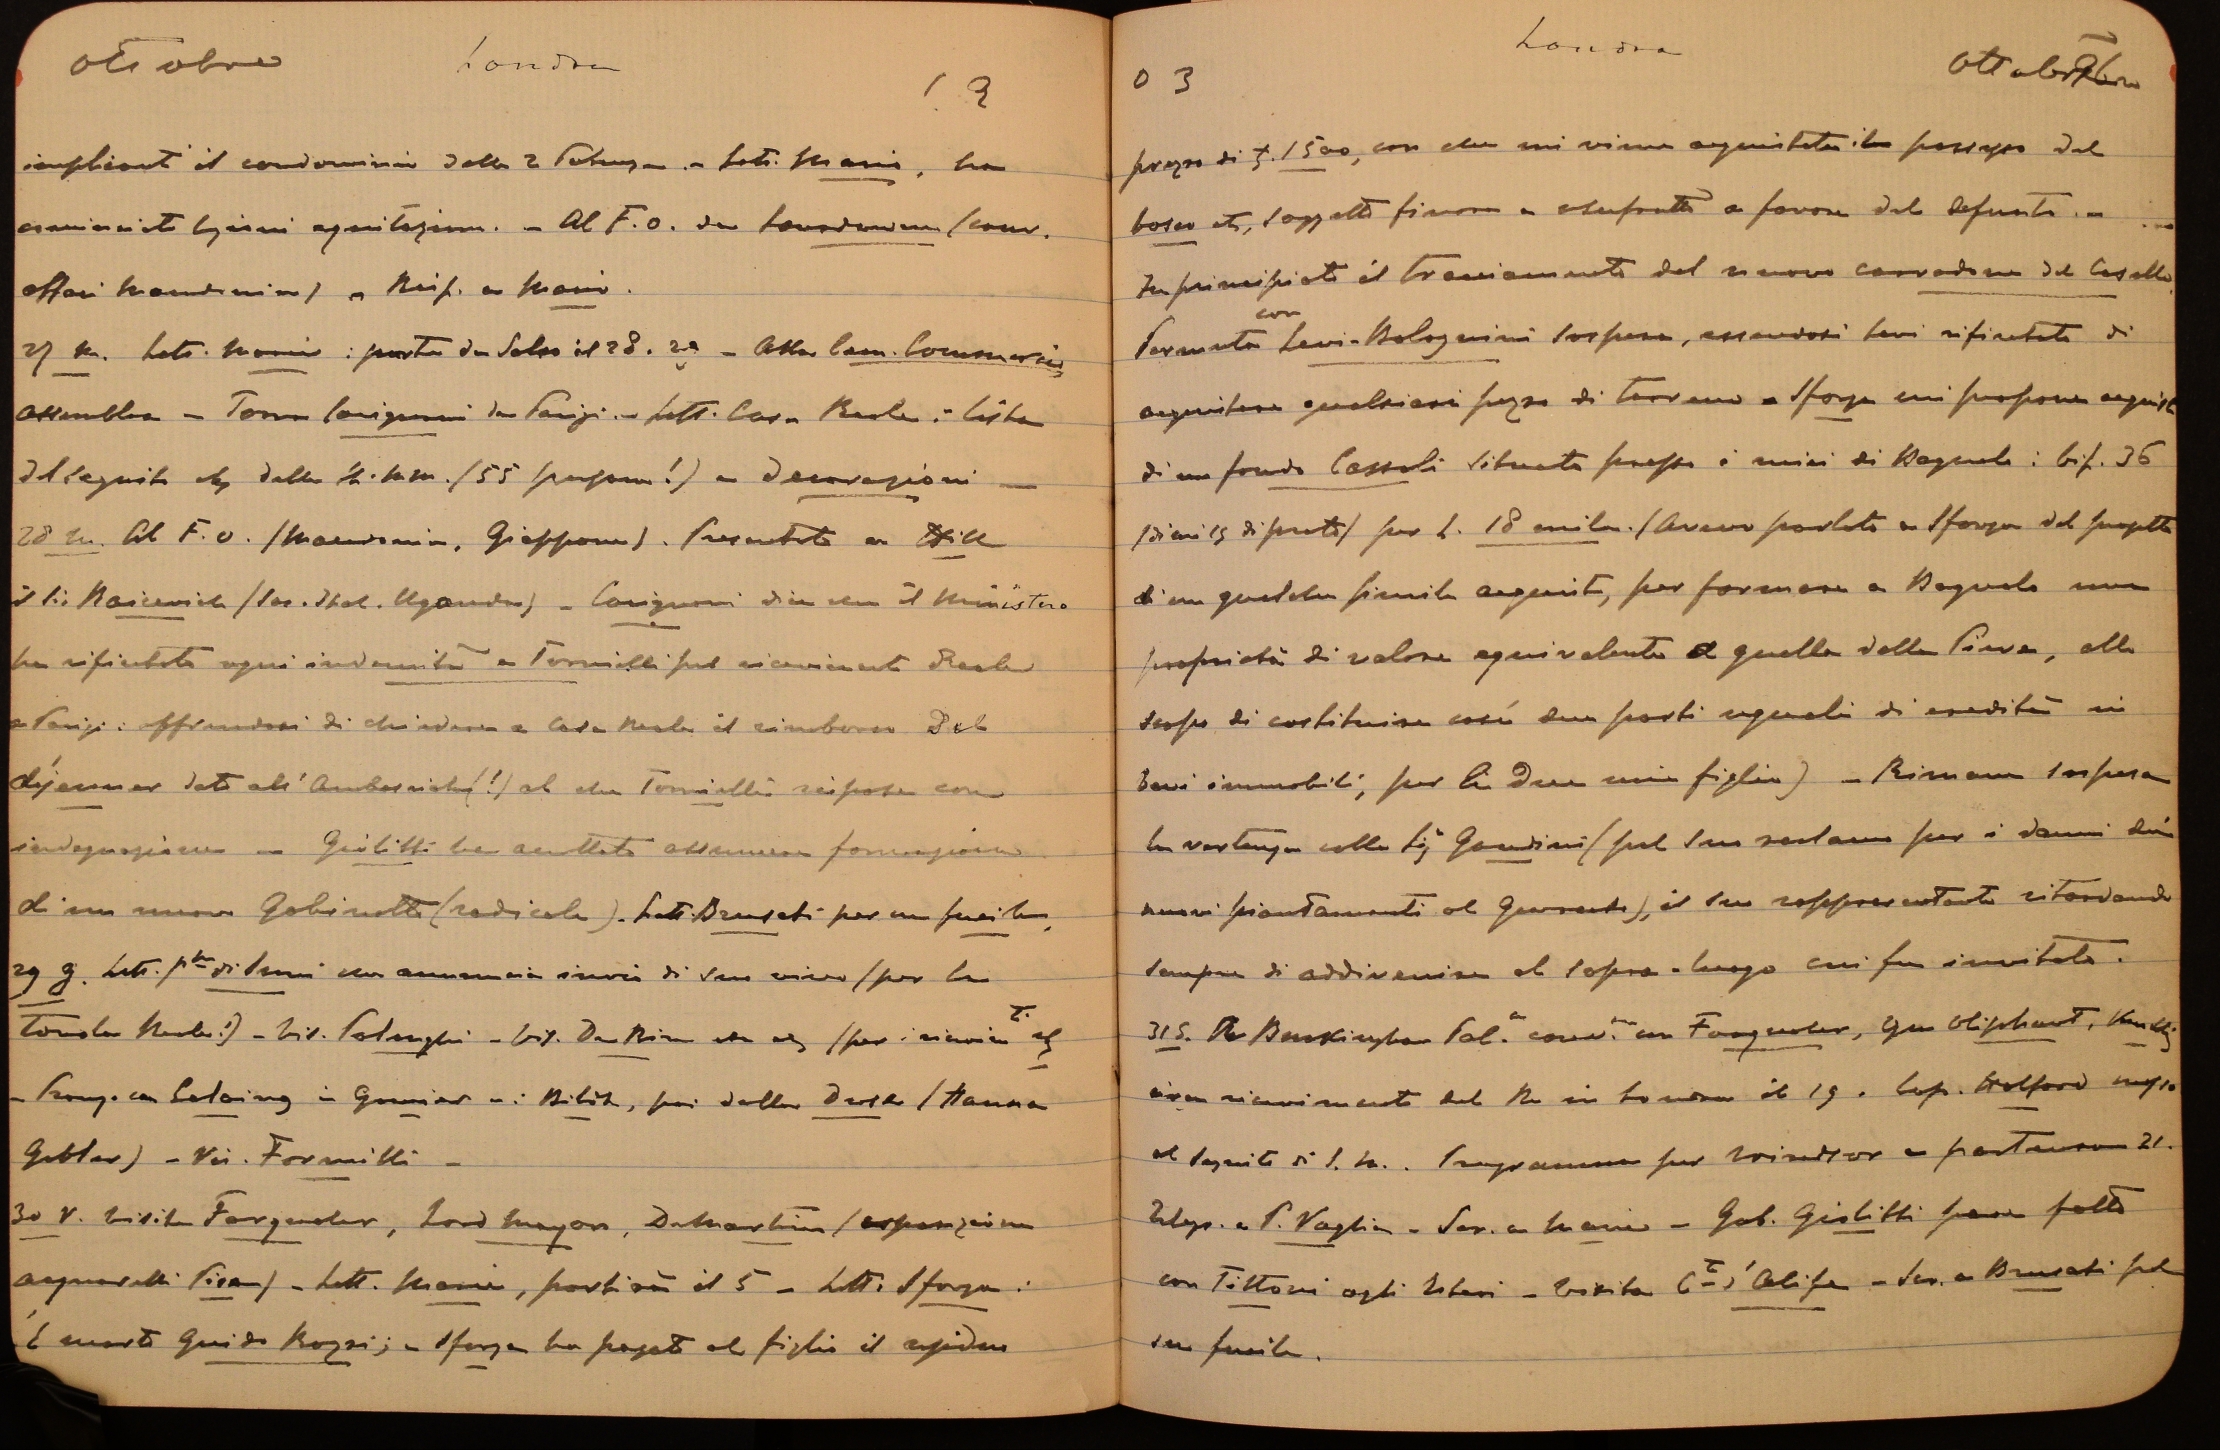 ottobre Londra
19
implicant il condominio della 2 - Lett. Maria, ha
cominciato agitazion. - Al F.O. da Lansdowne (conv.
affari Macedonia) - Risp. a Maria.
27 M. Lett. Maria : parte da Salso il 28. 29 - Alla Cam. Commercio
assemblea - Torna Carignani da Parigi. - Lett. Casa Reale : lista
del seguito etc delle LL. MM. (55 persone!) e decorazioni —
28 M. Al F.O. (Macedonia, Giappone). Presentato a Hill
il S. Raicevich (Soc. Ital. Uganda) - Carignani dice che il Ministero
ha rifiutato ogni indennità a Tornielli pel ricevimento Reale
a Parigi : offrendosi di chiedere a Casa Reale il rimborso del
déjeuner dato all'Ambasciata (!) al che Tornielli rispose con
indegnazione - Giolitti ha accettato assumere formazione
di un nuovo Gabinetto (radicale). Lett. Brusati per un fucile.
29 G. Lett. che annuncia invio di suo vino (per la
tavola Reale!) - Vis. - Vis. De Rin etc etc (per ricevim.t etc
- Pranzo con in : Bilitz, poi dalla Duse (Hanna
Gabler) - Vis. Formilli -
30 V. Visita Farquhar, Lord Mayor, De Martino (esposizione
acquarelli Pisa) - Lett. Maria, partirà il 5 - Lett. Sforza :
È morto Guido Rozzi; - Sforza ha pagato al figlio il residuo
Londra ottobre
03
prezzo di 1500, con che mi viene acquistato il possesso del
bosco etc, soggetto finora a usufrutto a favore del defunto. -
In principiato il tracciamento del nuovo carradone del Casello.
Permuta con Levi-Bolognini sospesa, essendosi Levi rifiutato di
acquistare qualsiasi pezzo di terreno - Sforza mi propone acquisto
di un fondo Cassoli situato presso i miei di Bagnolo : bif. 36
(di cui 19 di prato) per L. 18 mila. (Avevo parlato a Sforza del progetto
di un qualche simile acquisto, per formare a Bagnolo una
proprietà di valore equivalente a quella della Pieve, allo
scopo di costituire così due parti uguali di eredità in
beni immobili, per le due mie figlie) - Rimane sospesa
la vertenza colla Sig.a Gandini (pel suo reclamo per i danni dai
nuovi piantamenti al ), il suo rappresentante ritardando
sempre di addivenire al sopra-luogo cui fu invitato.
31 S. A Buckingham Pal. conv. con Farquhar, Oliphant,
circa ricevimento del Re in Londra il 19. Cap. Holford messo
al seguito di S.M.. Programma per Windsor e partenza 21.
Telegr. a P. Vaglia - Scr. a Maria - Gab. Giolitti pare fatto
con Tittoni agli Esteri - Visita C.te d'Alife - Scr. a Brusati pel
suo fucile.